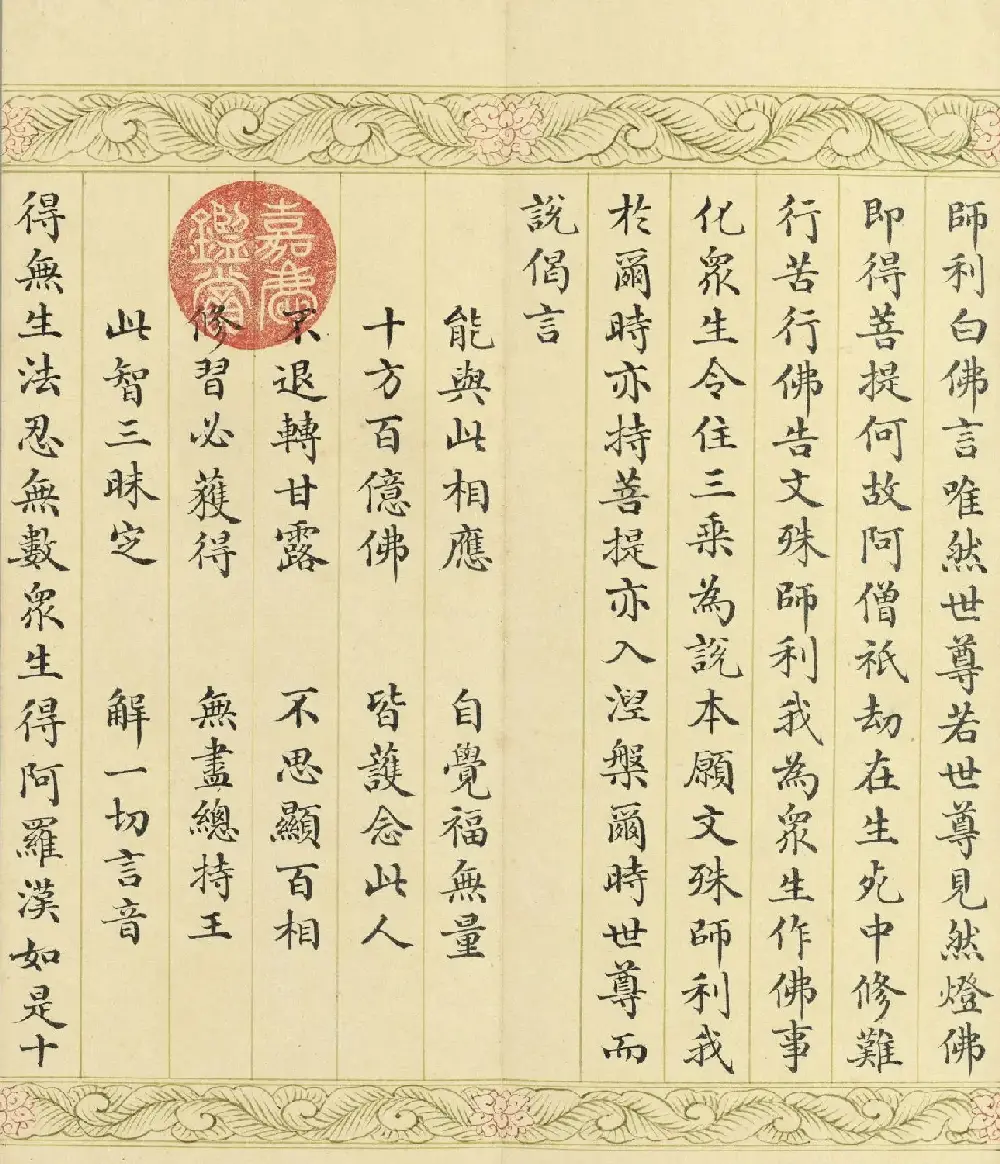 師利白佛言唯然世尊若世尊見然燈佛
即得菩提何故阿僧祇劫在生死中修難
行苦行佛告文殊師利我為眾生作佛事
化眾生令住三乘為說本願文殊師利我
於爾時亦持菩提亦入涅槃爾時世尊而
說偈言
能與此相應 自覺福無量
十方百億佛 皆護念此人
不退轉甘露 不思顯百相
修習必獲得 無盡總持王
此智三昧定 解一切言音
得無生法忍無數眾生得阿羅漢如是十
嘉慶鑑賞